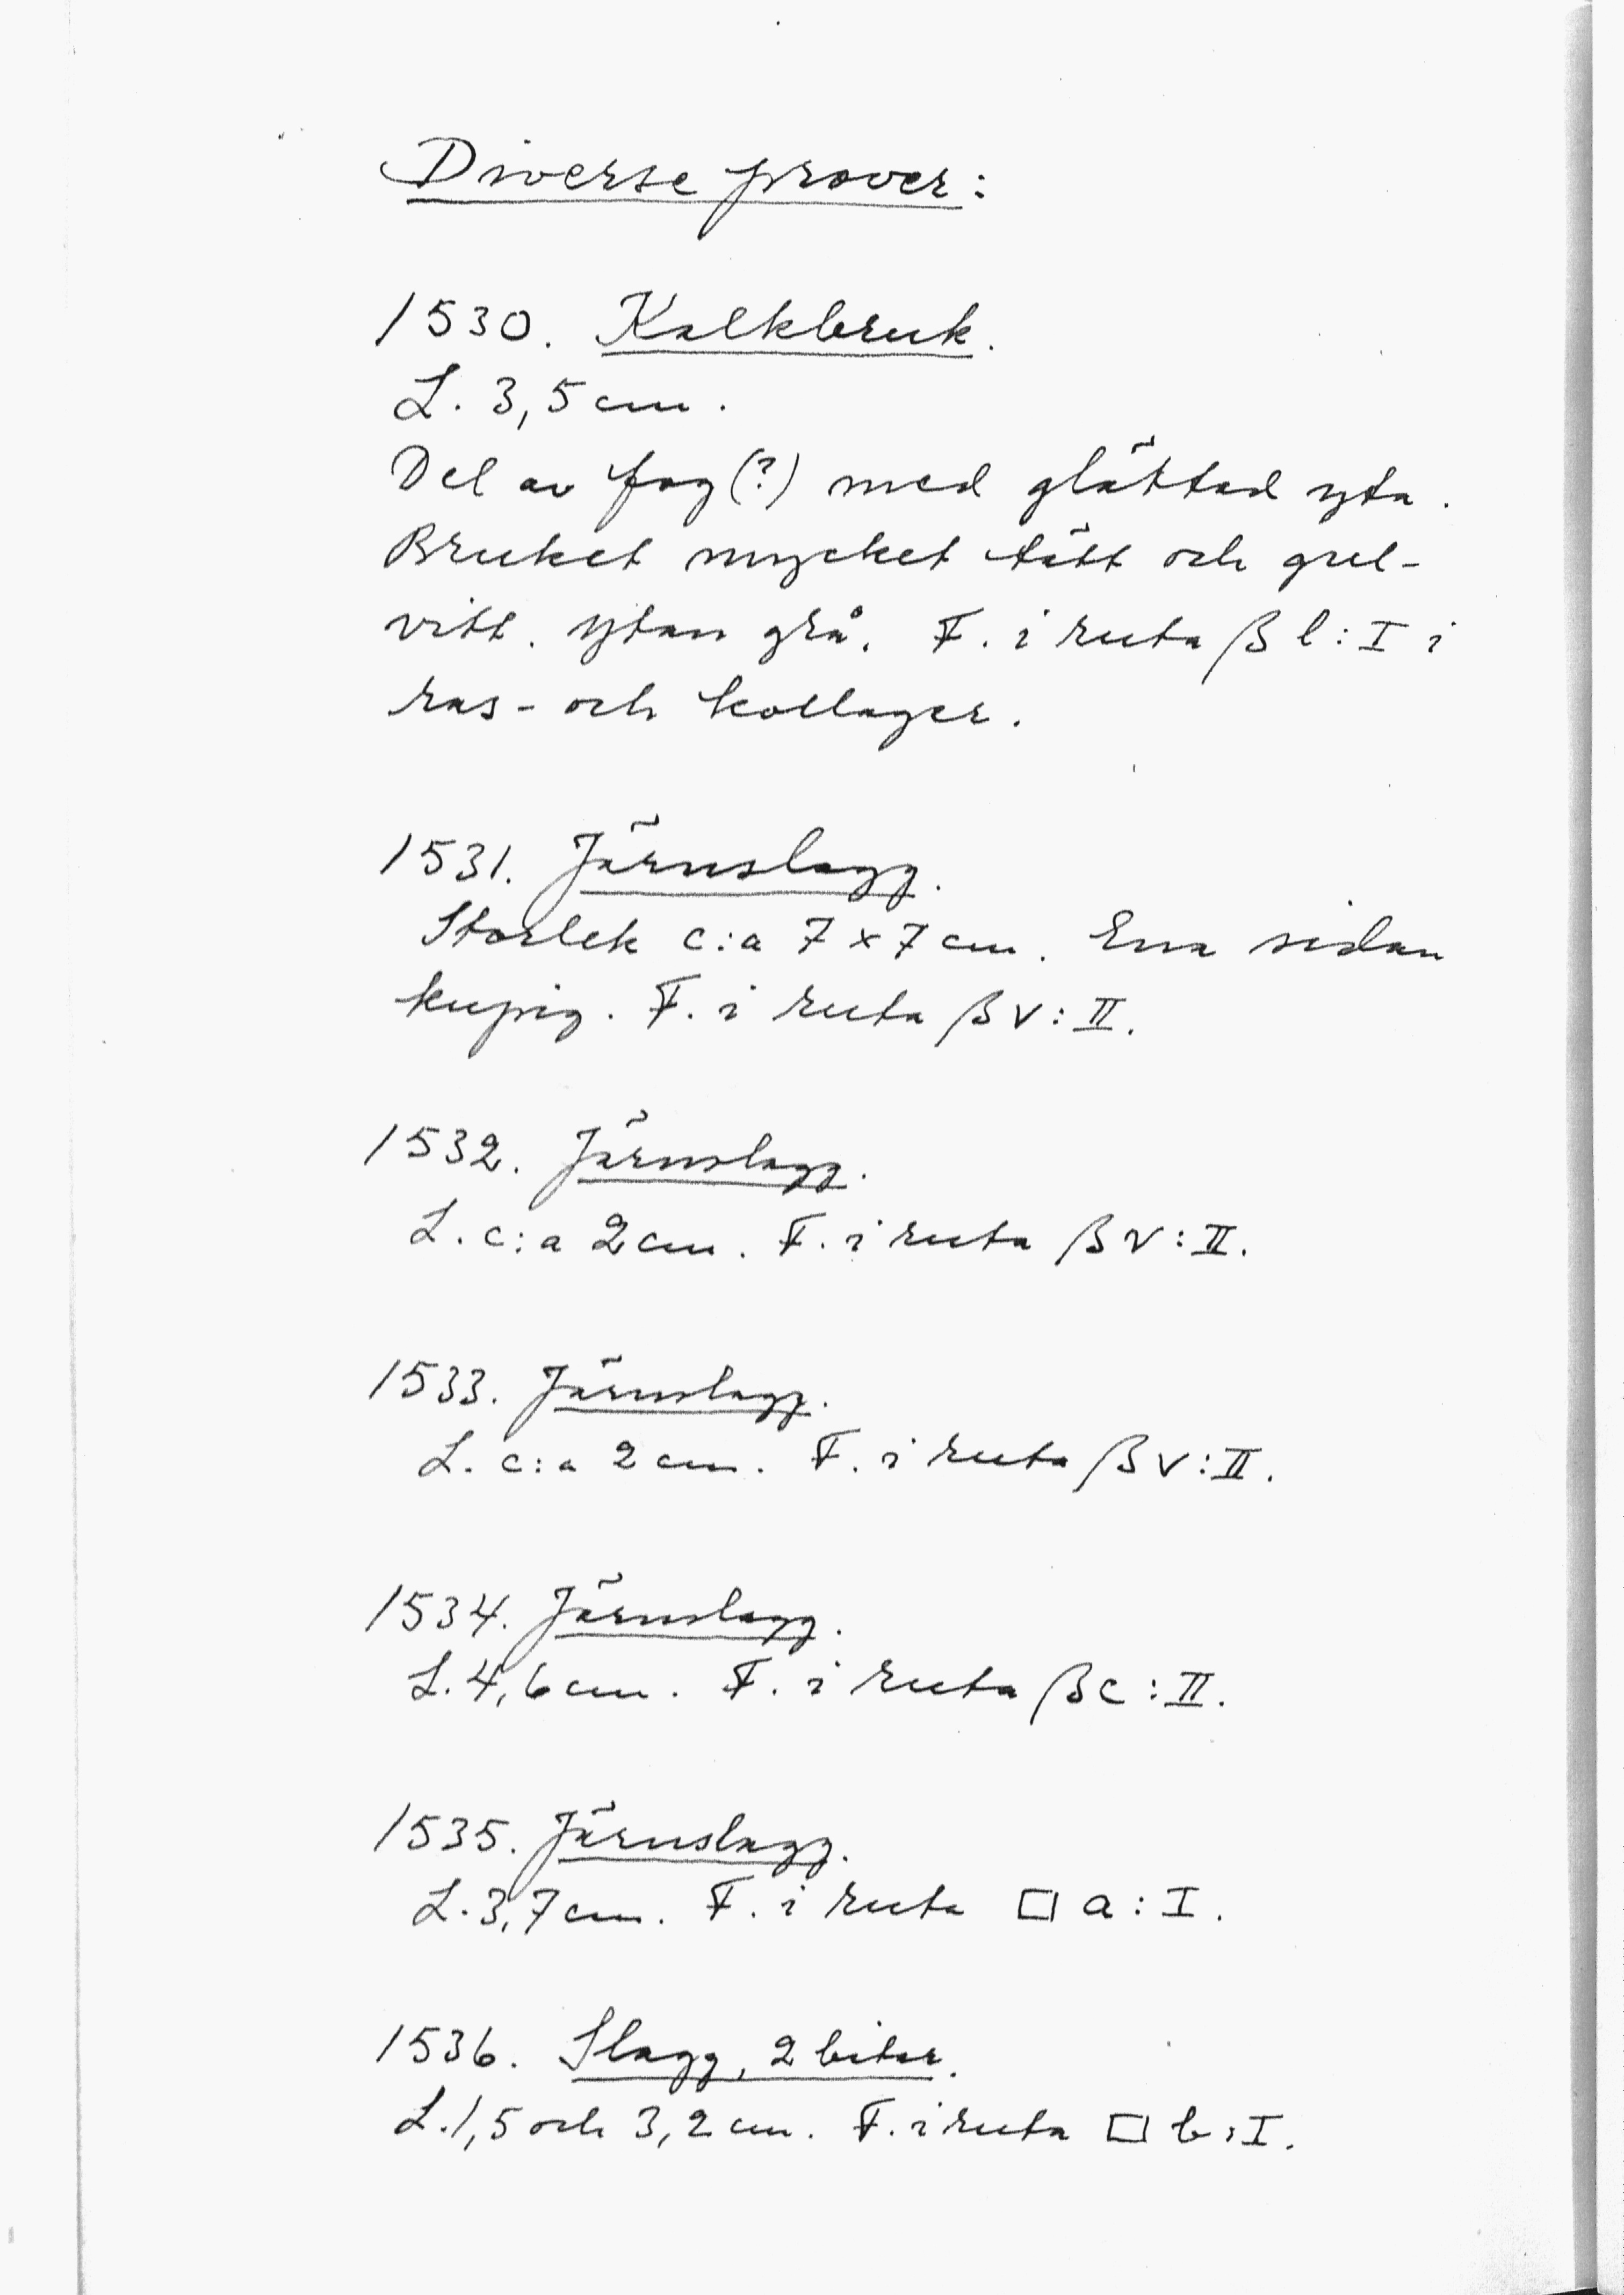 Diverse prover:
1530. Kalkbruk.
L. 3,5 cm.
Del av fog (?) med glättad yta.
Bruket mycket tätt och gul-
vitt. Ytan grå. F. i ruta β l : I i
ras- och kollager.
1531. Järnslagg.
Storlek c:a 7 × 7 cm. Ena sidan
kupig. F. i ruta β v : II.
1532. Järnslagg.
L. c:a 2 cm. F. i ruta β v : II.
1533. Järnslagg.
L. c:a 2 cm. F. i ruta β v : II.
1534. Järnslagg.
L. 4,6 cm. F. i ruta β c : II.
1535. Järnslagg.
L. 3,7 cm. F. i ruta □ a : I.
1536. Slagg, 2 bitar.
L. 1,5 och 3,2 cm. F. i ruta □ b : I.